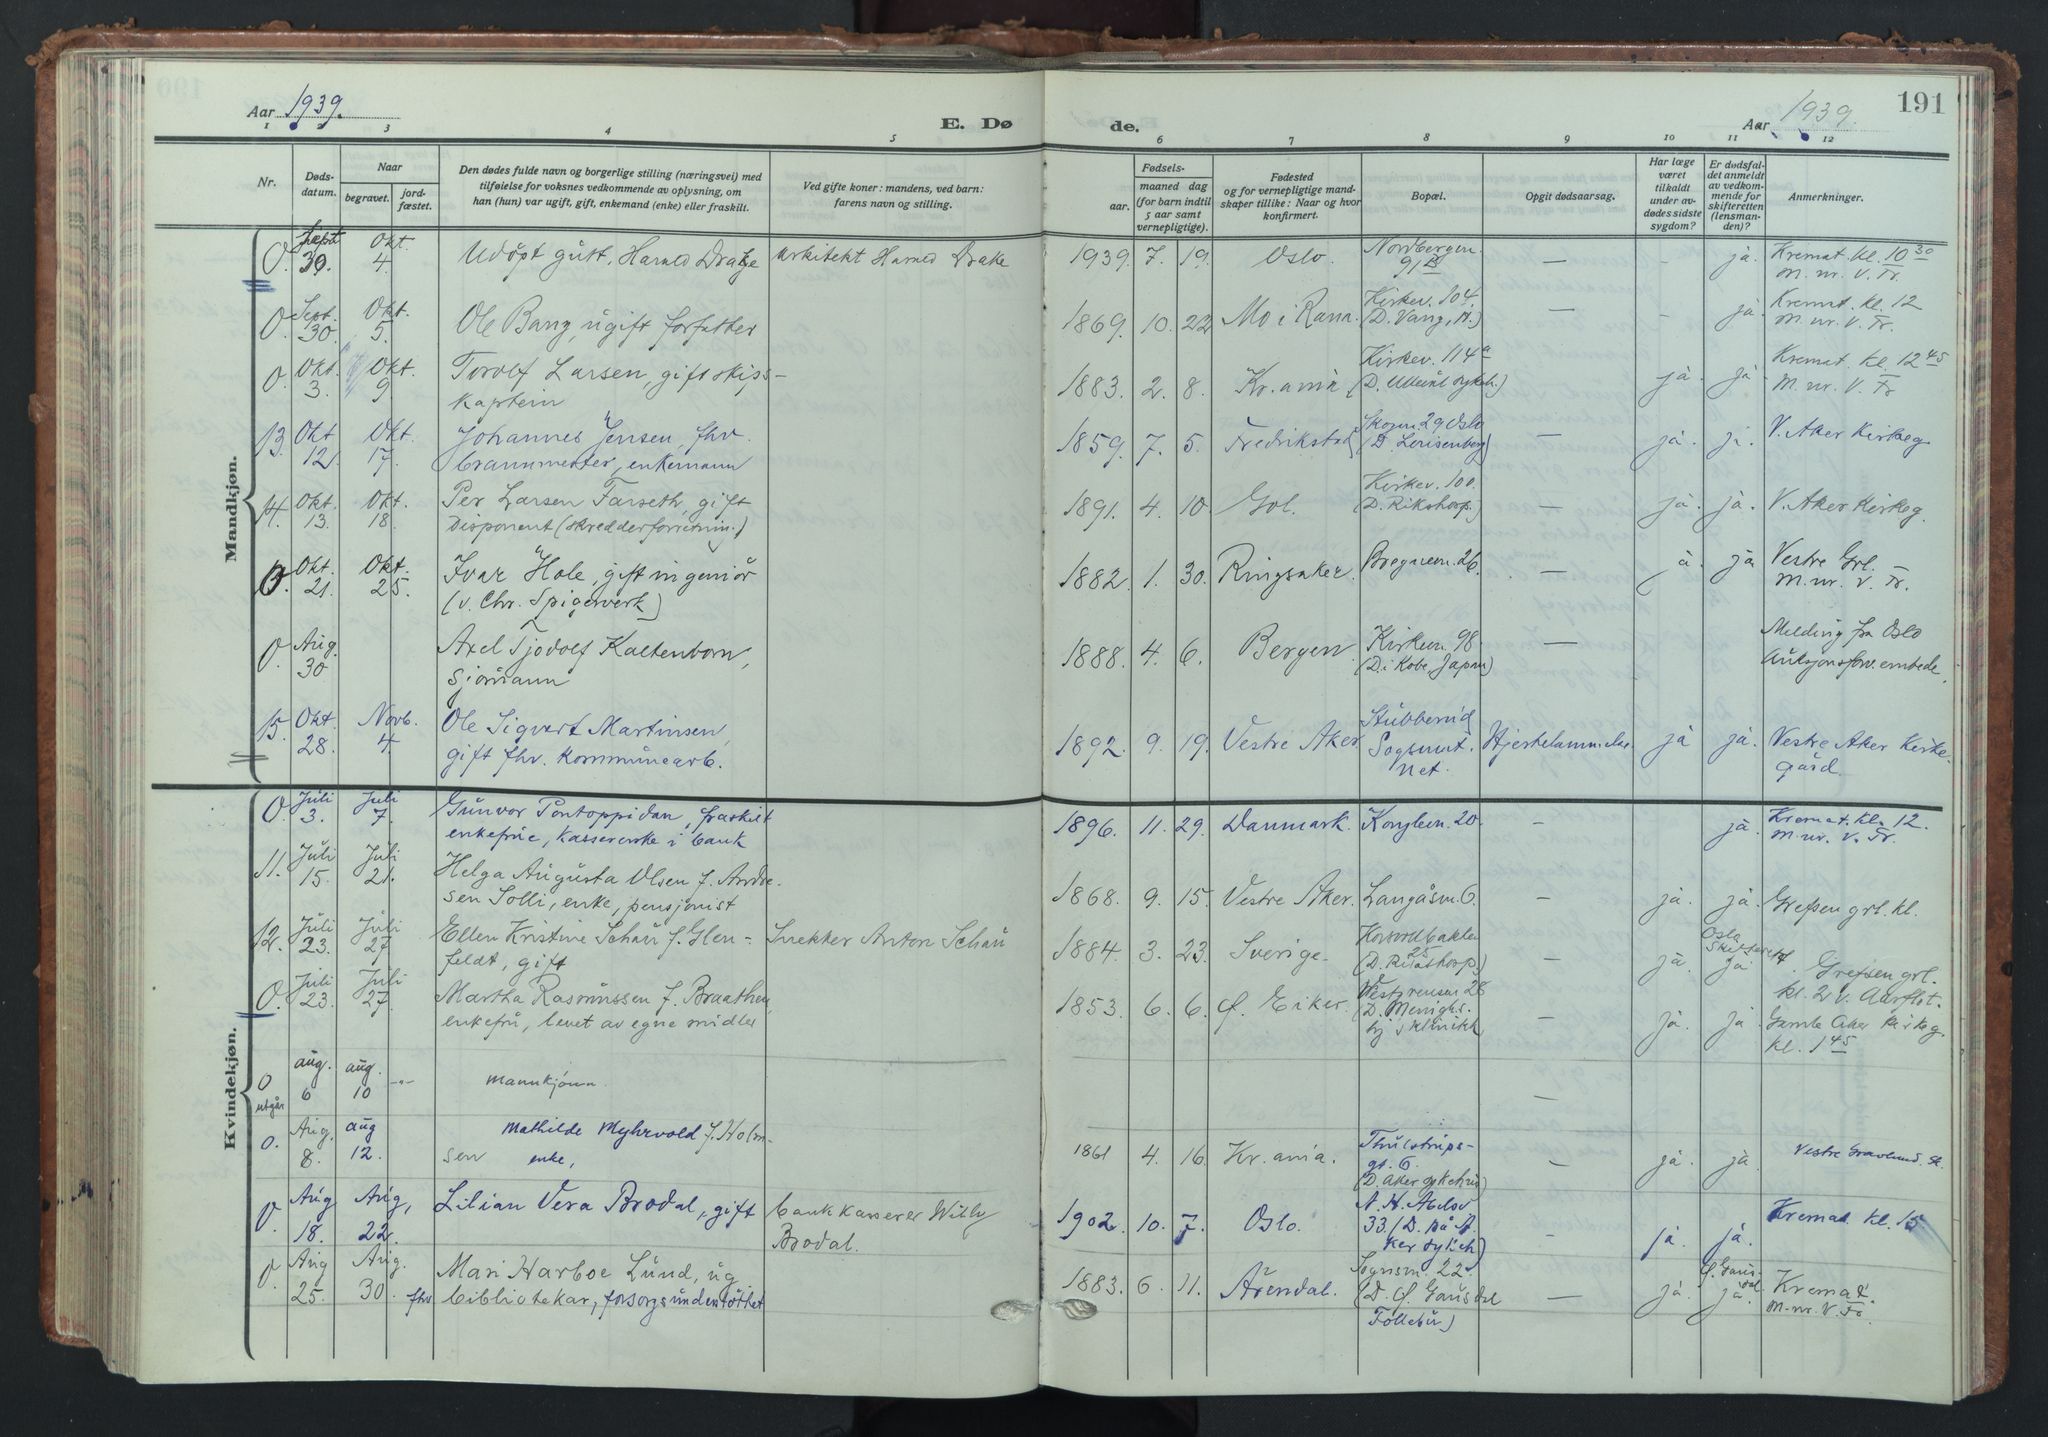 Aar 1939.
E. Døde.
Aar 1939.
191
1 2 3 4 5 6 7 8 9 10 11 12
Nr.
Døds-
datum.
Naar
begravet.
jord-
fæstet.
Den dødes fulde navn og borgerlige stilling (næringsvei) med
tilføielse for voksnes vedkommende av oplysning, om
han (hun) var ugift, gift, enkemand (enke) eller fraskilt.
Ved gifte koner: mandens, ved barn:
farens navn og stilling.
Fødsels-
aar.
maaned dag
(for barn indtil
5 aar samt
vernepligtige).
Fødested
og for vernepligtige mand-
skaper tillike: Naar og hvor
konfirmert.
Bopæl.
Opgit dødsaarsag.
Har læge
været
tilkaldt
under av-
dødes sidste
sygdom?
Er dødsfal-
det anmeldt
av vedkom-
mende for
skifteretten
(lensman-
den)?
Anmerkninger.
Mandkjøn.
0. Sept. 30. Okt. 4. Udöpt gutt, Harned Drake arkitekt Harned Drake 1939. 7. 19. Oslo. Nordbergvn. 91B — - ja. Kremat. kl. 10 30
M. nr. V. Fr.
0 Sept. 30. Okt. 5. Ole Bang, ugift forfatter 1869. 10. 22 Mo i Rana. Kirkev. 104. — - ja. Kremat. kl. 12
M. nr. V. Fr.
0. Okt. 3. Okt. 9. Torolf Larsen, gift skips-
kaptein 1883. 2. 8. Kr.ania Kirkev. 114a
(D. Ullevål sykeh.) ja. ja Kremat. kl. 12 45
M. nr. V. Fr
13. Okt. 12. Okt. 17. Johannes Jensen, fhv.
brannmester, enkemann 1859. 7. 5. Fredrikstad Skogvn. 29 Oslo
(D. Lovisenberg) — ja. ja. V. Aker Kirkeg.
14. Okt. 13. Okt. 18. Per Larsen Farseth, gift
Disponent (skredderforretnin.) 1891. 4. 10. Gol. Kirkev. 100.
(D. Rikshosp.) — ja. ja. V. Aker Kirkeg.
0. Okt. 21. Okt. 25. Ivar Hole, gift ingeniör
(v. Chr. Spigerverk) 1882. 1. 30. Ringsaker. Bregnevn. 26. — ja ja Vestre Grl.
M. nr. V. Fr.
0. Aug. 30 Axel Tjodolf Kaltenborn,
sjömann 1888. 4. 6. Bergen Kirkevn. 98.
(D. i Kobe, Japan) — Melding fra Oslo
Auksjonsforv. embede.
15. Okt. 28. Novb. 4. Ole Sigvert Martinsen,
gift fhv. kommunearb. 1892. 9. 19. Vestre Aker Stubberud
Sognsvat-
net. Hjertelammelse. ja ja. Vestre Aker Kirke-
gård.
Kvindekjøn.
0. Juli 3. Juli 7. Gunvor Pontoppidan, fraskilt
enkefrue, kassererske i bank 1896. 11. 29. Danmark. Konglevn. 20. — ja. Kremat. kl. 12.
M. nr. V. Fr.
11. Juli 15. Juli 21. Helga Augusta Olsen f. Andre-
sen Solli, enke, pensjonist 1868. 9. 15. Vestre Aker. Langåsvn. 6. — ja. ja. Grefsen grl. kl.
12. Juli 23. Juli 27 Ellen Kristine Schau f. Glen-
feldt, gift Snekker Anton Schau 1884. 3. 23. Sverige. Korsvoldbakken
25
(D. Rikshosp.) — ja. Oslo
skifterett
ja Grefsen grl.
kl. 2 v. Aarflot.
0. Juli 23. Juli 27. Martha Rasmussen f. Braathen,
enkefru, levet av egne midler 1853. 6. 6. Ø. Eiker. Vestgrensen 28
(D. Menighs.
klinikk — ja. ja. Gamle Aker Kirkeg.
kl. 1 45
0
utgår aug. 6 aug. 10 -"- mannkjönn. —
0. Aug. 8. aug 12. Mathilde Myhrvold f. Holm-
sen enke, 1861 4. 16. Kr.ania. Thulstrups-
gt. 6.
(D. Aker sykehus) — ja. ja Vestre Gravlund. kl.
0. Aug. 18. Aug. 22. Lilian Vera Brodal, gift bankkasserer Willy
Brodal. 1902. 10. 7. Oslo. N. H. Abelsv
33 (D. på A
ker sykeh) — ja. ja. Kremat. kl. 15
0. Aug 25. Aug. 30. Mari Harboe Lund, ug.
fhv bibliotekar, forsorgsunderstöttet 1883. 6. 11. Arendal. Sognsvn. 22.
(D. Ø. Gausdal
Follebu) — ja. Ø. Gaus-
dal
ja. Kremat.
M. nr. V. Fr.